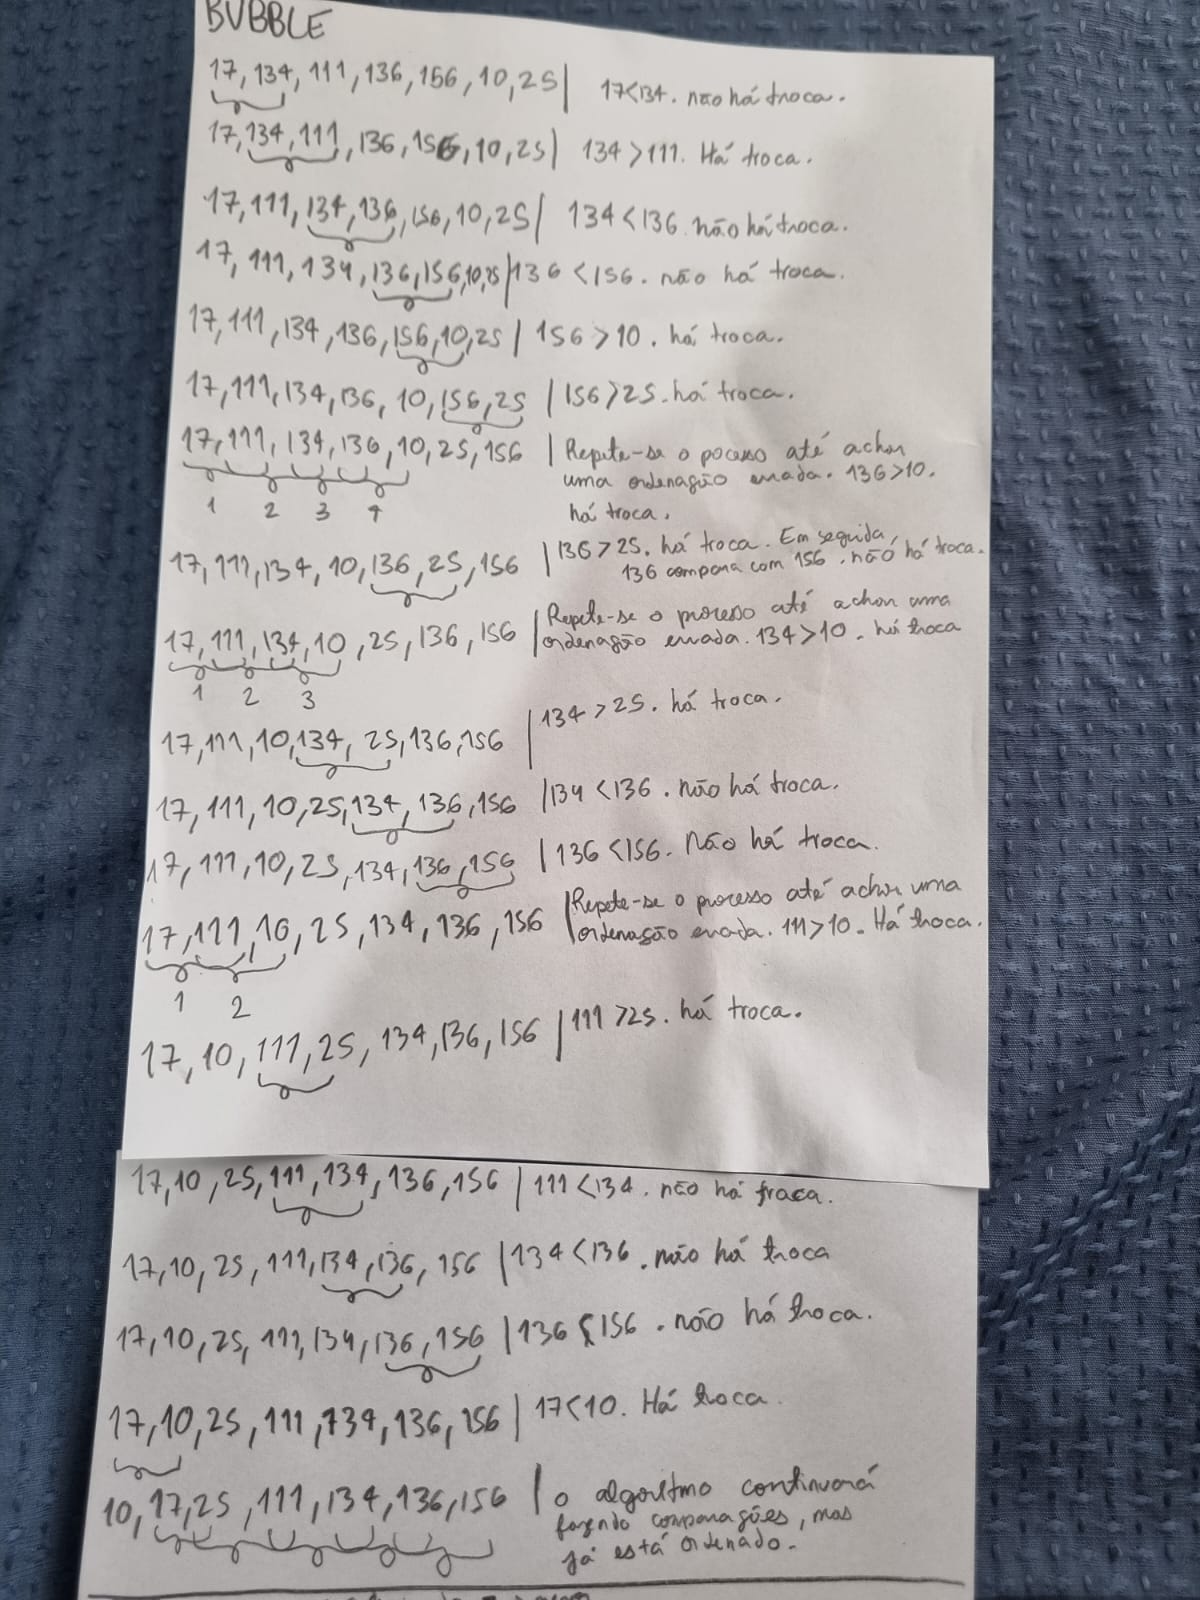 BUBBLE
17, 134, 111, 136, 156, 10, 25 | 17<134. não há troca.
17, 134, 111, 136, 156, 10, 25 | 134 > 111. Há troca.
17, 111, 134, 136, 156, 10, 25 | 134 < 136. não há troca.
17, 111, 134, 136, 156, 10, 25 | 136 < 156. não há troca.
17, 111, 134, 136, 156, 10, 25 | 156 > 10. há troca.
17, 111, 134, 136, 10, 156, 25 | 156 > 25. há troca.
17, 111, 134, 136, 10, 25, 156 | Repete-se o pocesso até achar
uma ordenação errada. 136 > 10.
1 2 3 4
há troca.
17, 111, 134, 10, 136, 25, 156 | 136 > 25. há troca. Em seguida,
136 compara com 156. não há troca.
17, 111, 134, 10, 25, 136, 156 | Repete-se o processo até achar uma
ordenação errada. 134 > 10. há troca
1 2 3
17, 111, 10, 134, 25, 136, 156 | 134 > 25. há troca.
17, 111, 10, 25, 134, 136, 156 | 134 < 136. não há troca.
17, 111, 10, 25, 134, 136, 156 | 136 < 156. Não há troca.
17, 111, 10, 25, 134, 136, 156 | Repete-se o processo até achar uma
ordenação errada. 111 > 10. Há troca.
1 2
17, 10, 111, 25, 134, 136, 156 | 111 > 25. há troca.
17, 10, 25, 111, 134, 136, 156 | 111 < 134. não há troca.
17, 10, 25, 111, 134, 136, 156 | 134 < 136. não há troca
17, 10, 25, 111, 134, 136, 156 | 136 < 156. não há troca.
17, 10, 25, 111, 134, 136, 156 | 17 < 10. Há troca.
10, 17, 25, 111, 134, 136, 156 | o algoritmo continuará
fazendo comparações, mas
já está ordenado.